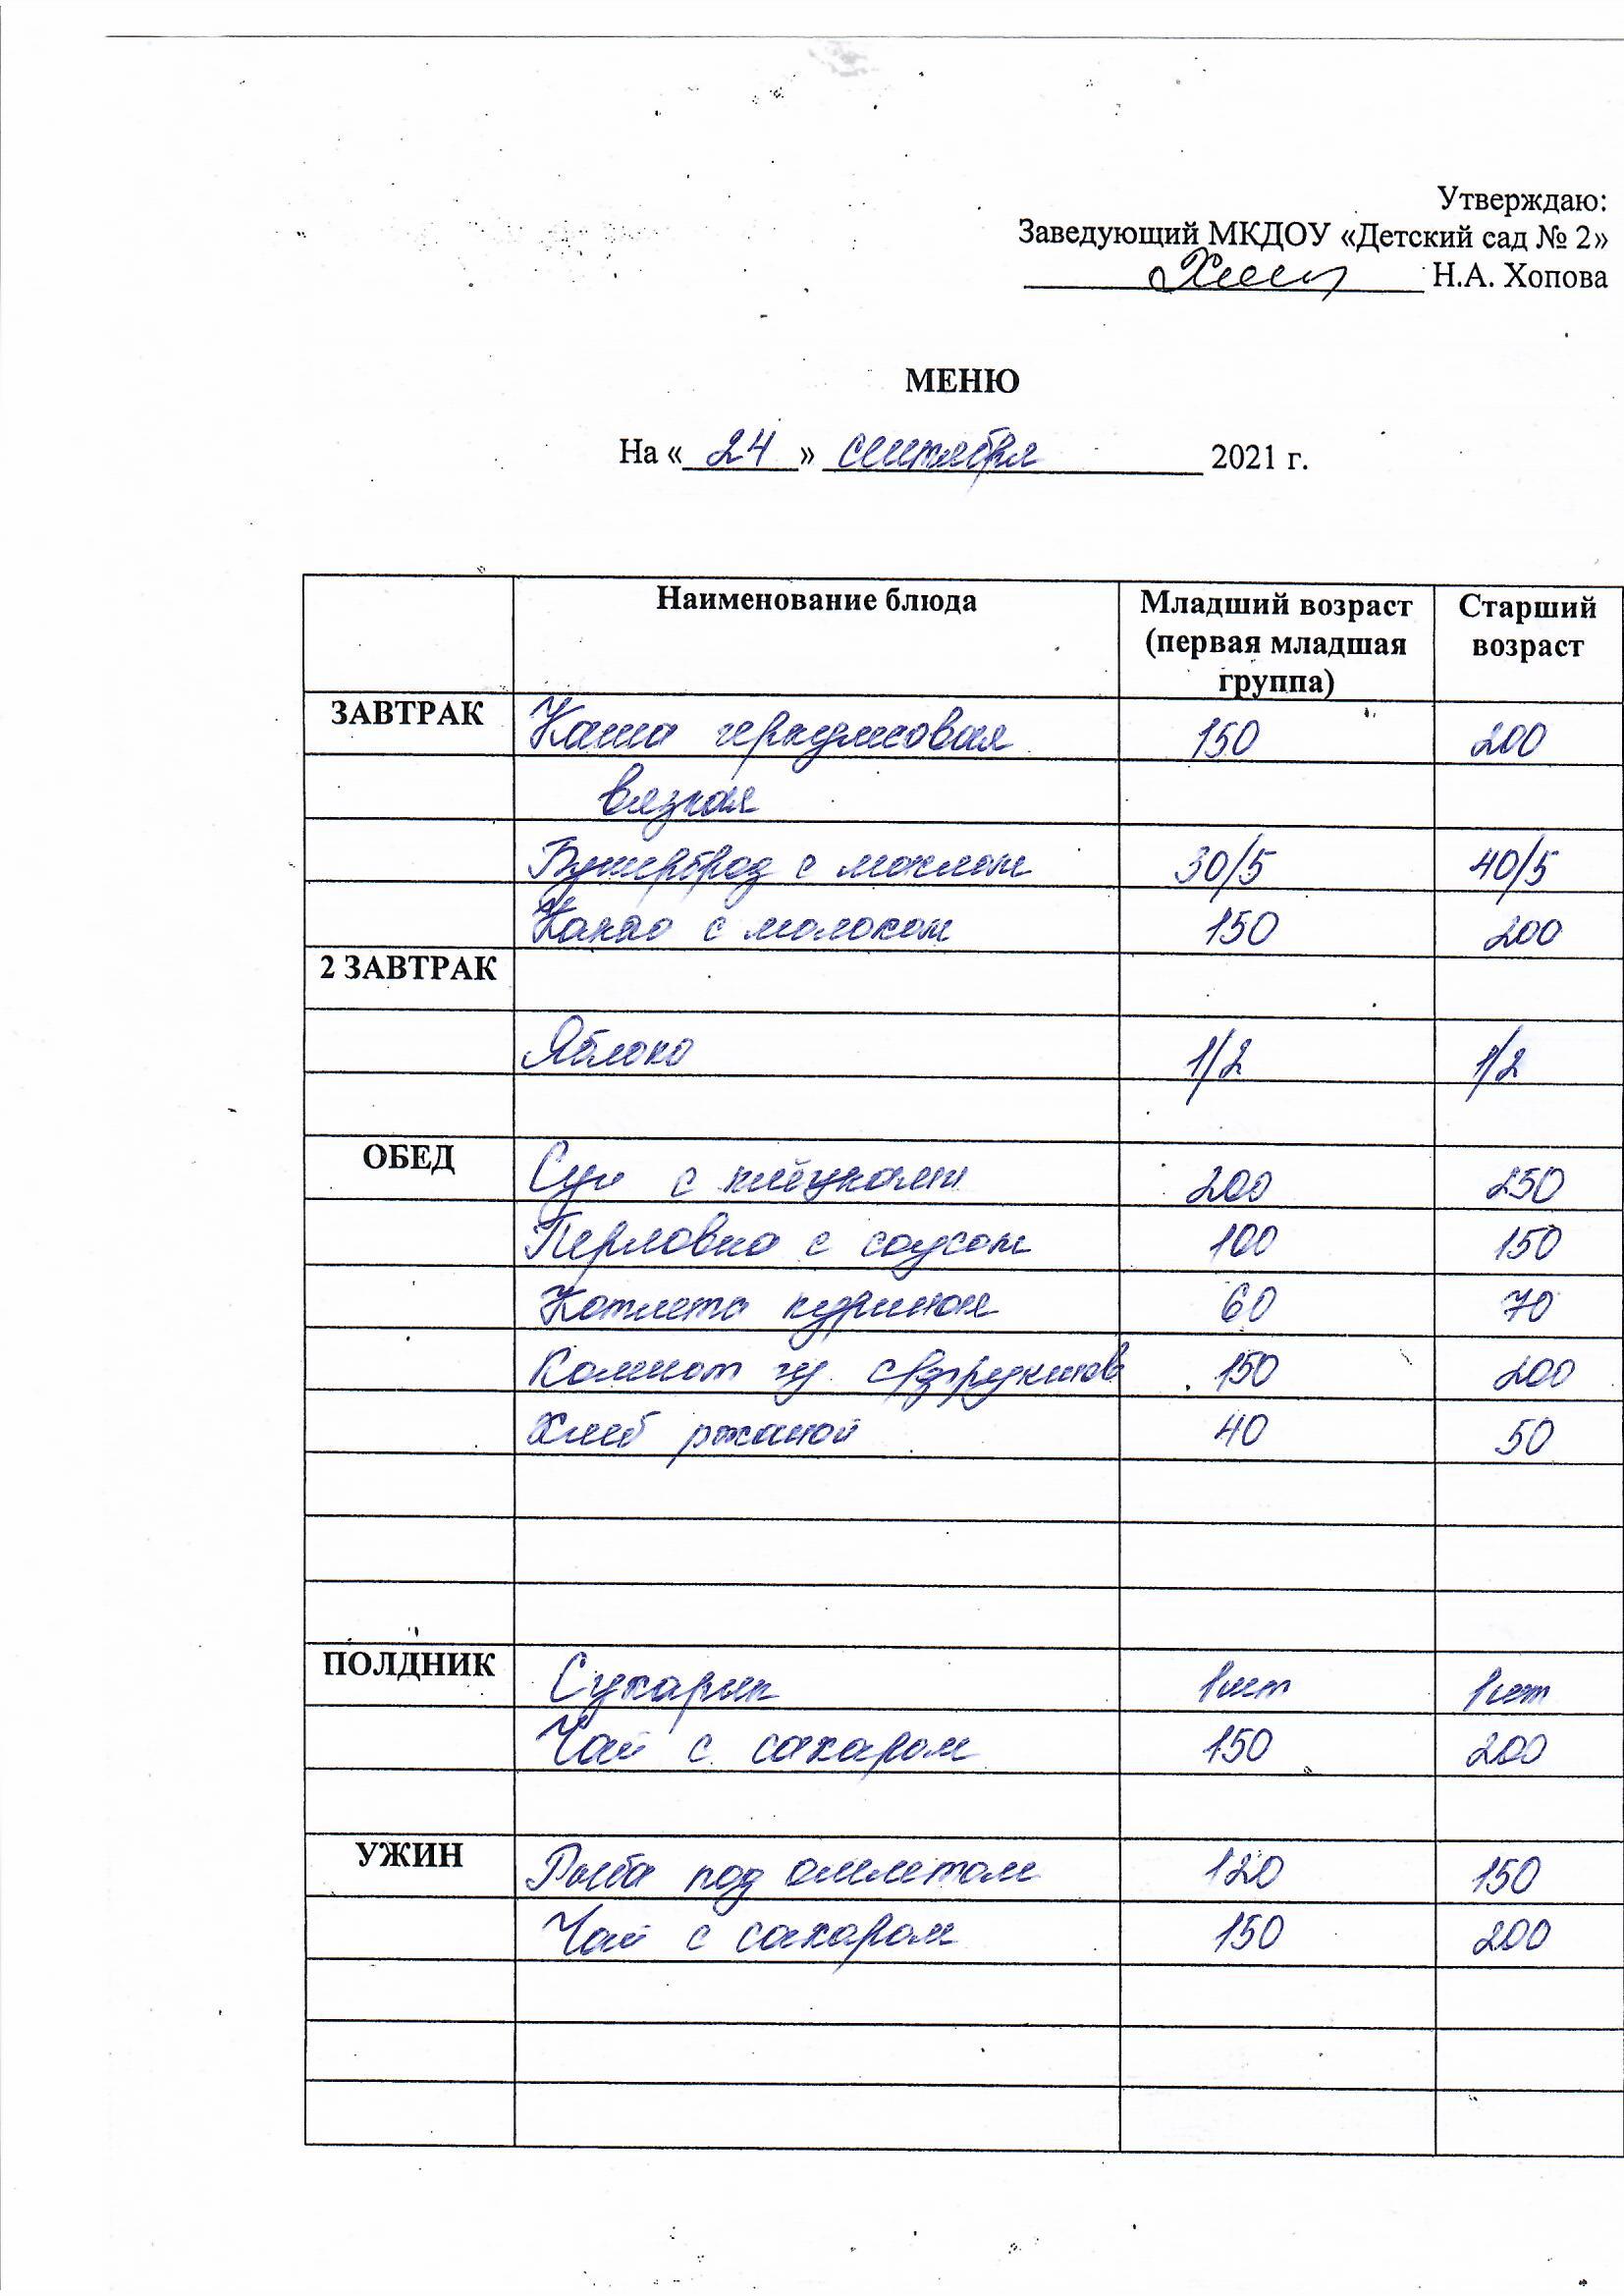 Утверждаю:
Заведующий МКДОУ «Детский сад № 2»
Н.А. Хопова
МЕНЮ
На « 24 » сентября 2021 г.
Наименование блюда Младший возраст (первая младшая группа) Старший возраст
ЗАВТРАК Каша геркулесовая 150 200
вязкая
Бутерброд с маслом 30/5 40/5
Какао с молоком 150 200
2 ЗАВТРАК
Яблоко 1/2 1/2
ОБЕД Суп с клёцками 200 250
Перловка с соусом 100 150
Котлета куриная 60 70
Компот из с/фруктов 150 200
Хлеб ржаной 40 50
ПОЛДНИК Сухарик 1шт 1шт
Чай с сахаром 150 200
УЖИН Рыба под омлетом 120 150
Чай с сахаром 150 200